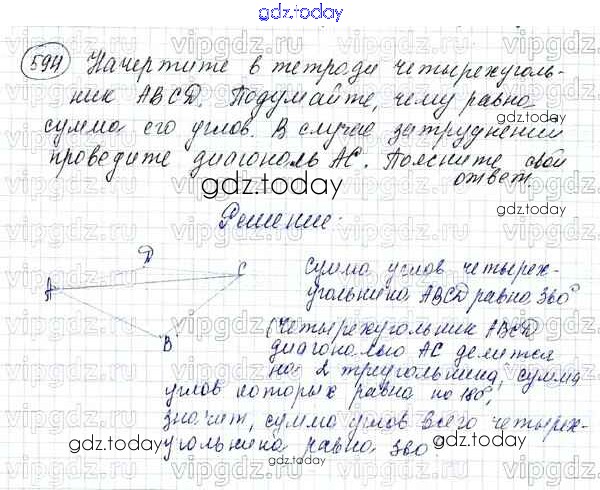 gdz.today
594 Начертите в тетради четырехуголь-
ник ABCD. Подумайте, чему равна
сумма его углов. В случае затруднений
проведите диагональ AC. Поясните свой
ответ.
gdz.today
gdz.today
Решение:
D
A
C
B
сумма углов четырех-
угольника ABCD равна 360°
(четырехугольник ABCD
диагональю AC делится
на 2 треугольника, сумма
углов которых равна по 180°,
значит, сумма углов всего четырех-
угольника равна 360°
gdz.today
gdz.today